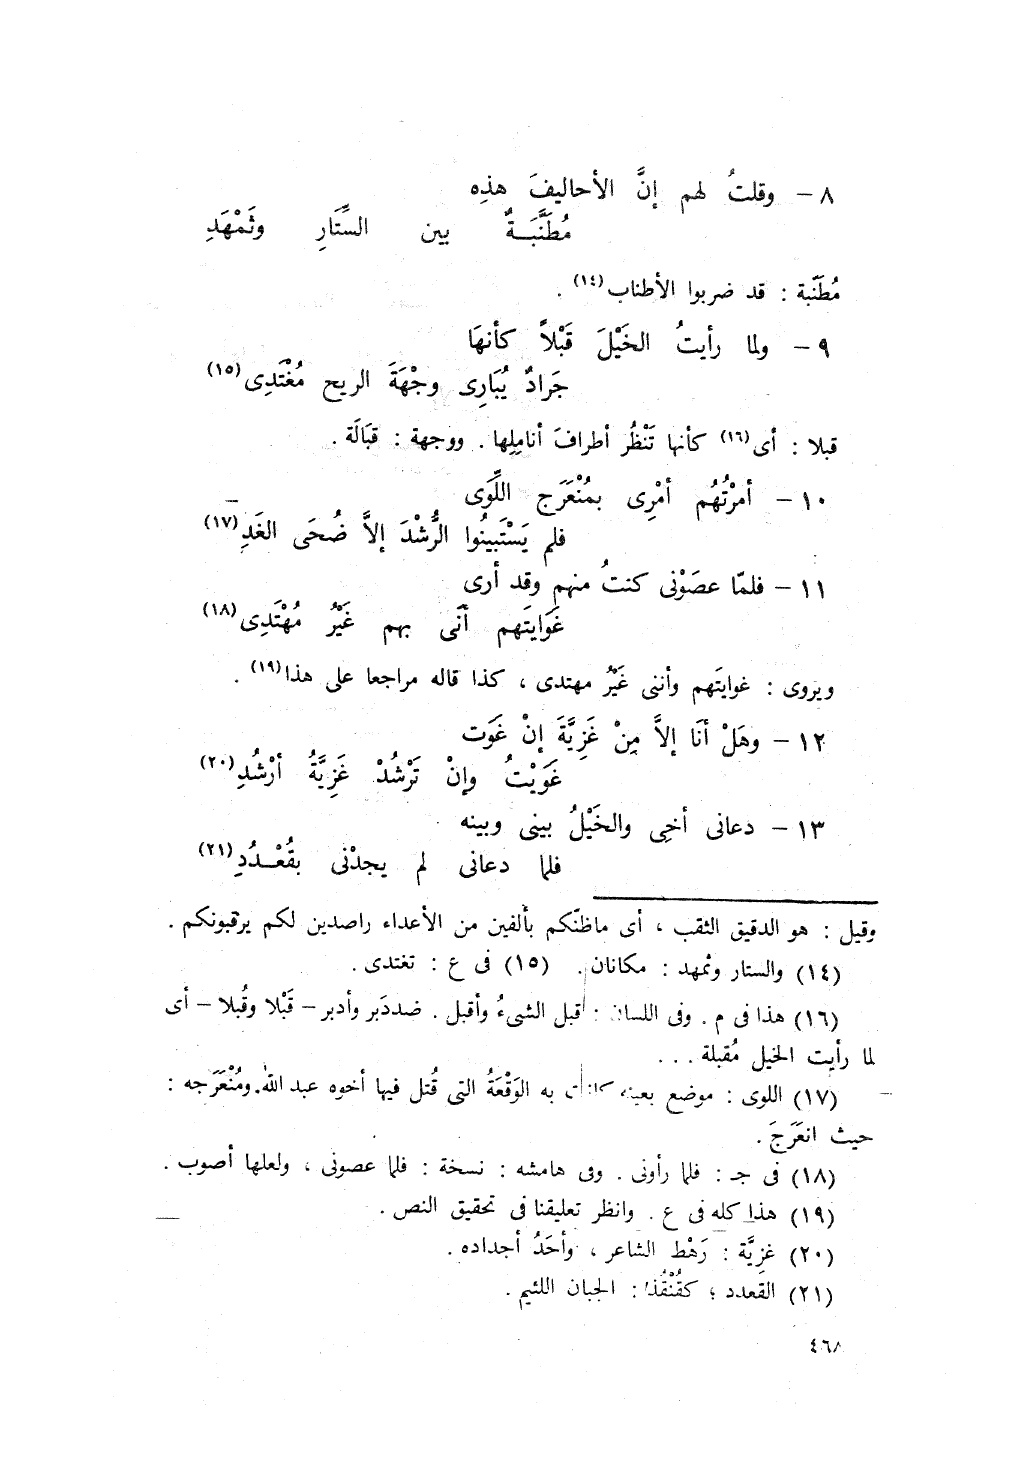 ٨ – وقلتُ لهم إنَّ الأحاليفَ هذِه
مُطَنَّبَـــةٌ بين السِّتَارِ وثَمْهَدِ
مُطَنّبة : قد ضربوا الأطناب(١٤) .
٩ – ولما رأيتُ الخَيْلَ قَبْلاً كأنهَا
جَرادٌ يُبَارِى وِجْهَةَ الريح مُغْتَدِى(١٥)
قبلا : أى(١٦) كأنها تَنْظُر أطرافَ أنامِلِها . ووجهة : قبَالَة .
١٠ – أمرْتُهُم أمْرِى بمُنْعَرَج اللَّوَى
فلم يَسْتَبينُوا الرُّشْدَ إلاَّ ضُحَى الغَدِ(١٧)
١١ – فلمّا عصَوْنى كنتُ منهم وقد أرى
غَوايتَهم أنّنى بهم غَيْرُ مُهْتَدِى(١٨)
ويروى : غوايتَهم وأننى غَيْرُ مهتدى ، كذا قاله مراجعا على هذا(١٩) .
١٢ – وهَلْ أنَا إلاَّ مِنْ غَزِيَّةَ إنْ غَوَت
غَوَيْتُ وإنْ تَرْشُدْ غَزِيَّةُ أرْشُدِ(٢٠)
١٣ – دعانى أخِى والخَيْلُ بينى وبينه
فلما دعانى لم يجدْنى بقُعْــدُدِ(٢١)
وقيل : هو الدقيق الثقب ، أى ماظنّكم بألفين من الأعداء راصدين لكم يرقبونكم .
(١٤) والستار وثمهد : مكانان . (١٥) فى ع : تغتدى .
(١٦) هذا فى م . وفى اللسان : أقبل الشىءُ وأقبل . ضددَبر وأدبر – قَبْلا وقُبلا – أى
لما رأيت الخيل مُقبلة . . .
(١٧) اللوى : موضع بعينه كانت به الوَقْعَةُ التى قُتل فيها أخوه عبد الله. ومُنْعَرَجه :
حيث انعَرَجَ .
(١٨) فى جـ : فلما رأونى . وفى هامشه : نسخة : فلما عصونى ، ولعلها أصوب .
(١٩) هذا كله فى ع . وانظر تعليقنا فى تحقيق النص .
(٢٠) غزِيَّة : رَهْط الشاعر ، وأحَدُ أجداده .
(٢١) القعدد ؛ كقُنْقُذ : الجبان اللئيم .
٤٦٨